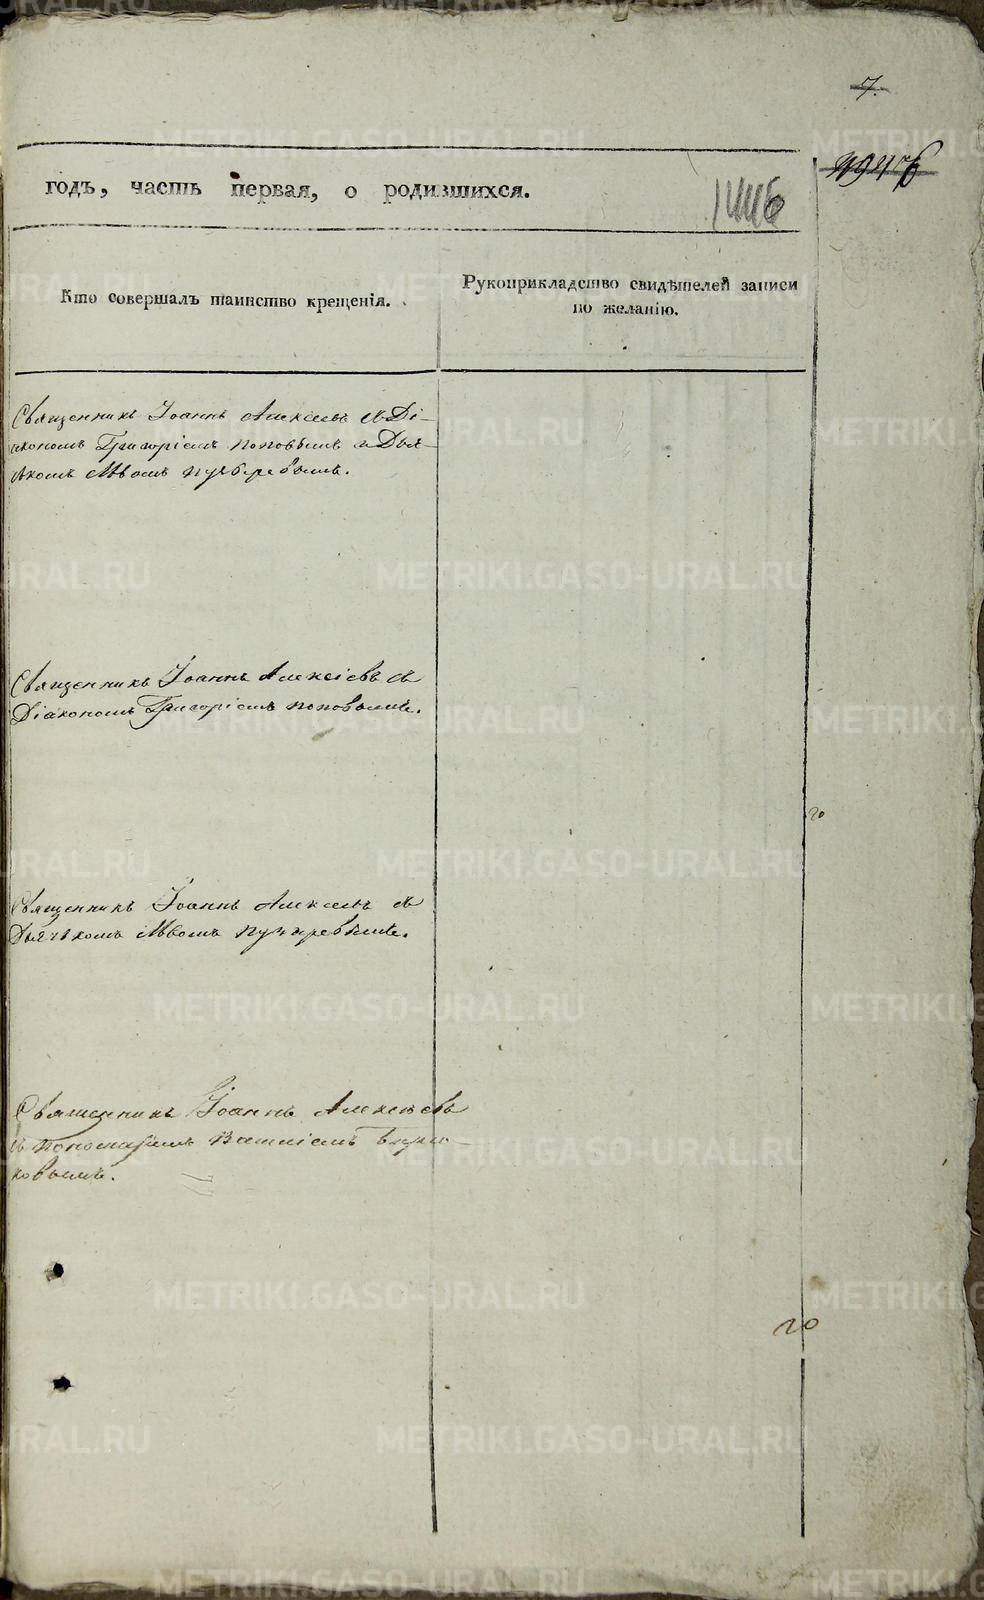 7.
годъ, часть первая, о родившихся.
Кто совершалъ таинство крещенія.
Рукоприкладство свидѣтелей записи
по желанію.
Священникъ Іоаннъ Алексѣевъ съ Ді-
акономъ Григоріемъ Поповымъ и Дья-
чкомъ Львомъ
Священникъ Іоаннъ Алексіевъ съ
Діакономъ Григоріемъ Поповымъ.
Священникъ Іоаннъ Алексѣевъ съ
Дьячкомъ Львомъ
Священникъ Іоаннъ Алексѣевъ
съ Пономаремъ
ковымъ.
METRIKI.GASO-URAL.RU